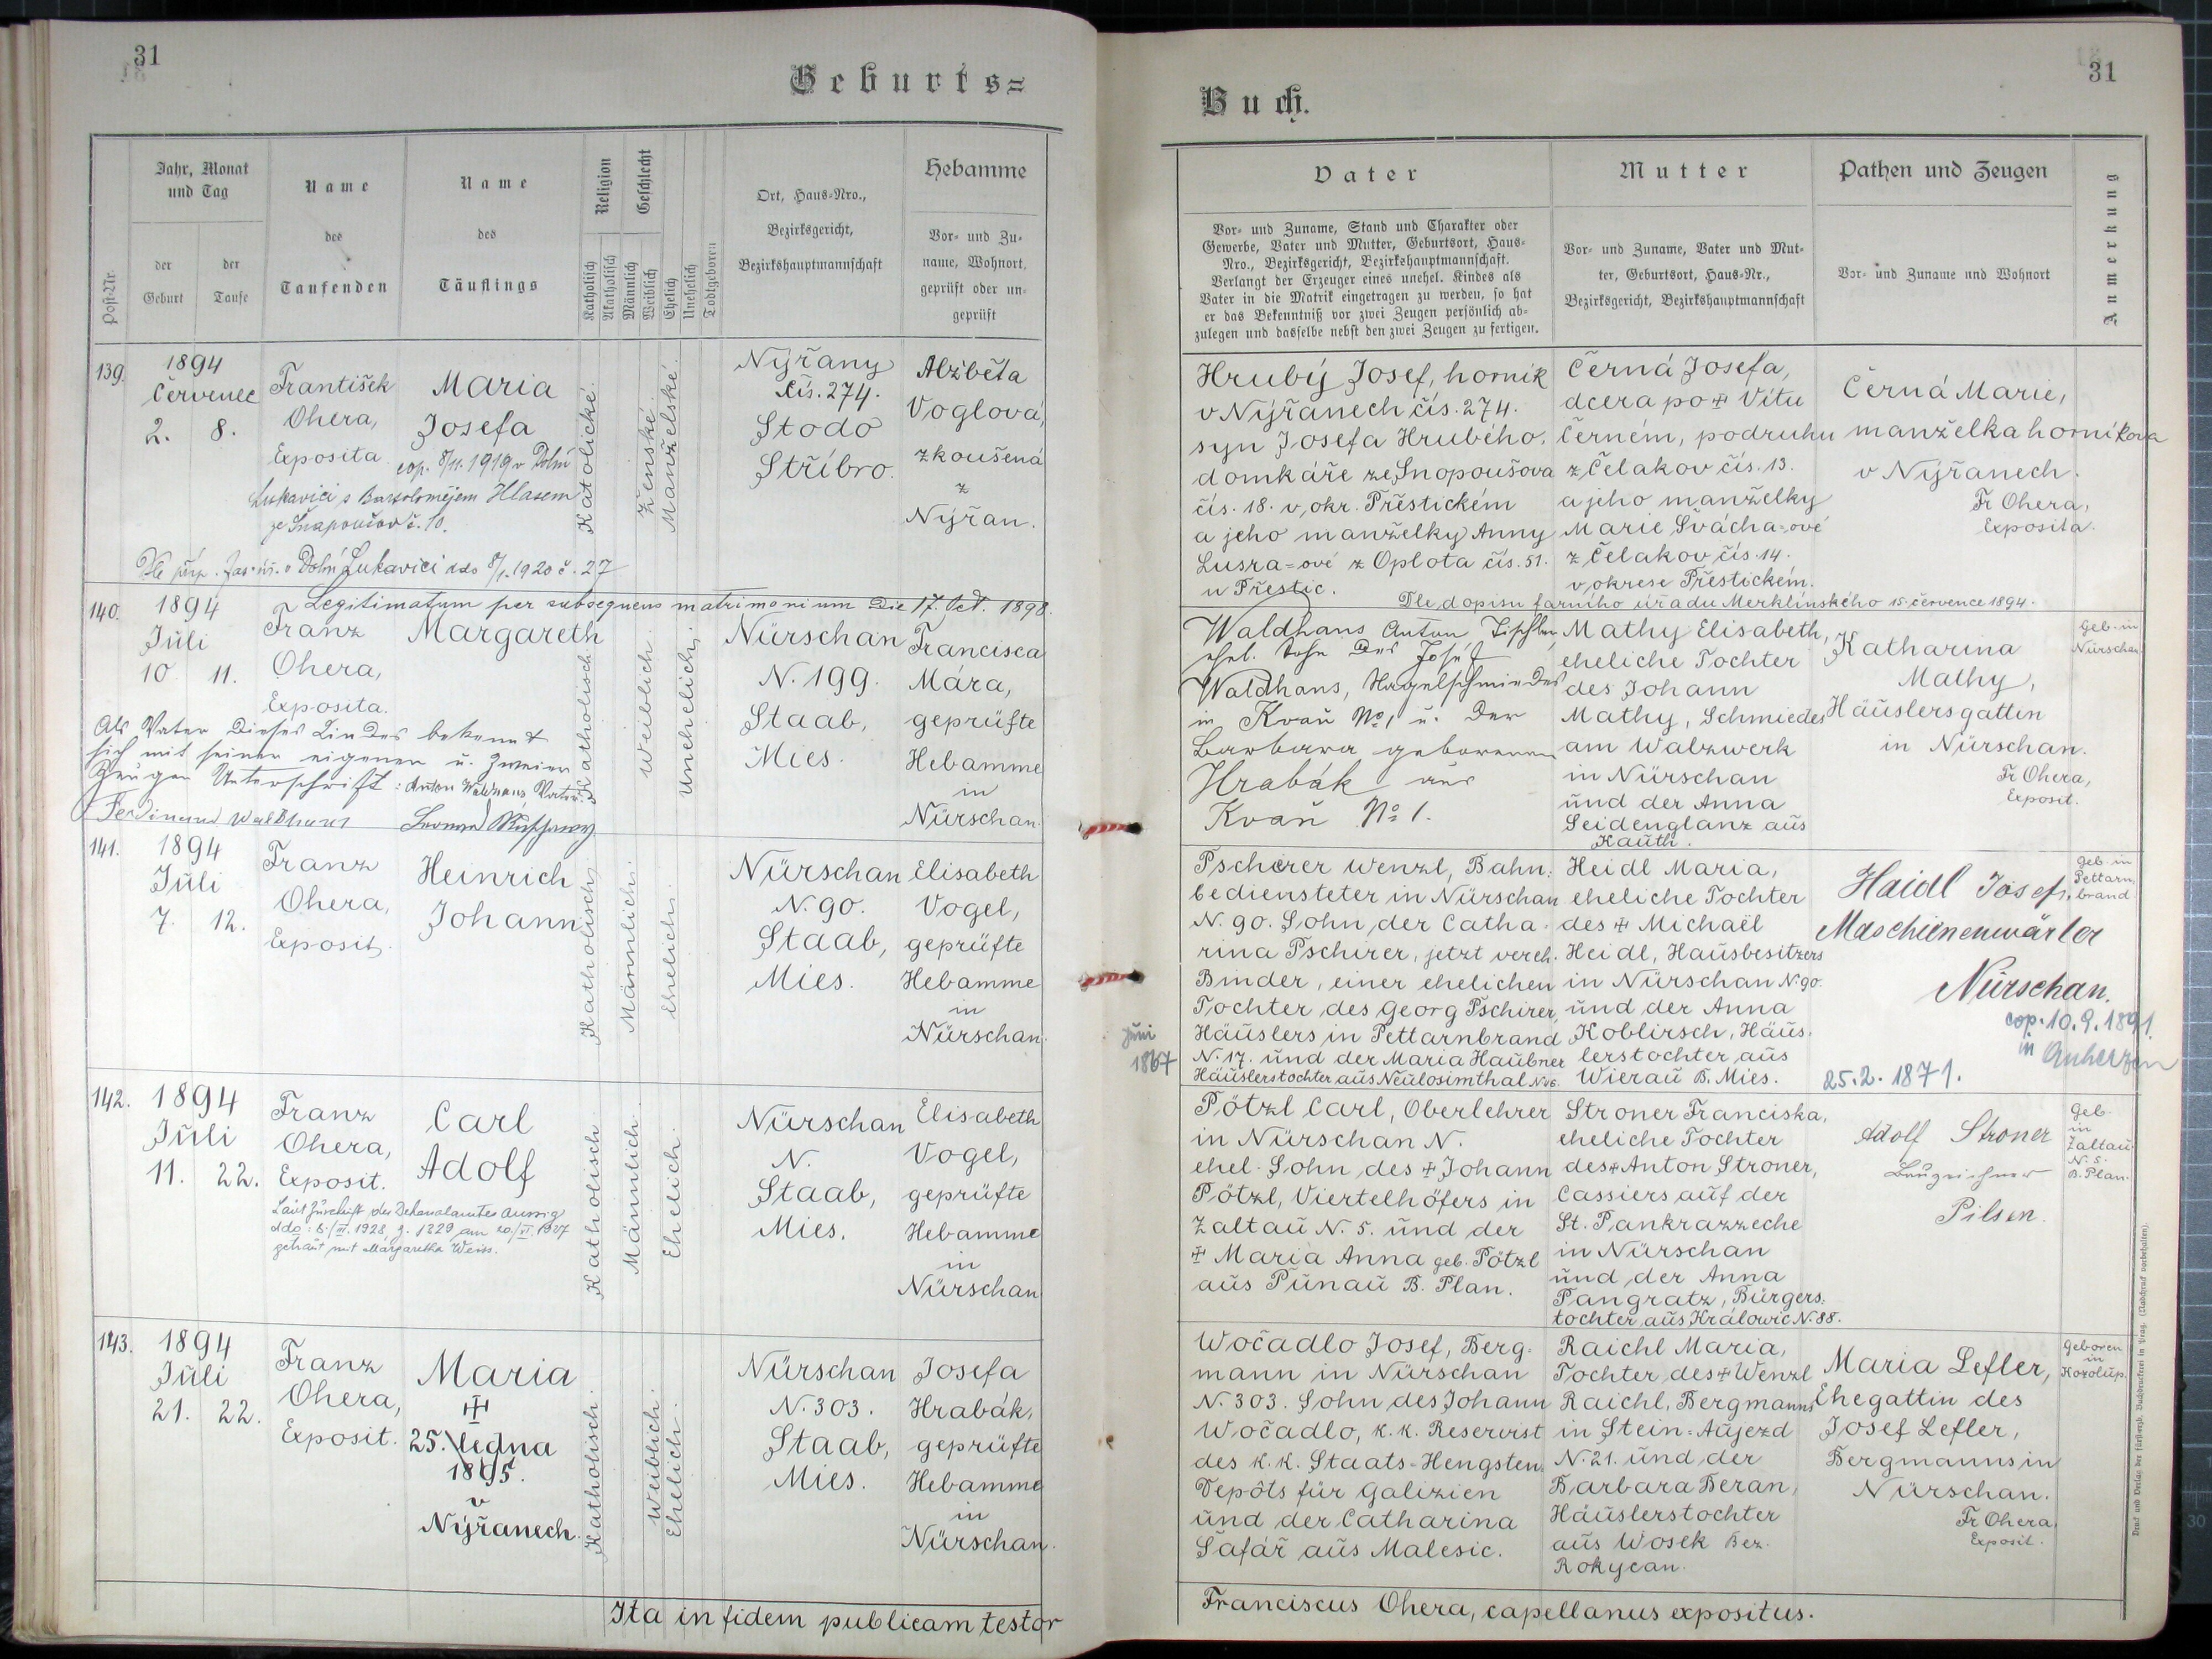 31
Geburts=
Jahr, Monat
und Tag
Name
Name
Religion
Geschlecht
Ort, Haus=Nro.,
Bezirksgericht,
Bezirkshauptmannschaft
Hebamme
Post-Nr.
der
Geburt
der
Taufe
des
Taufenden
des
Täuflings
Katholisch
Akatholisch
Männlich
Weiblich
Ehelich
Unehelich
Todtgeboren
Vor= und Zu=
name, Wohnort,
geprüft oder un=
geprüft
139.
1894
Červenec
2. 8.
František
Ohera,
Exposita
Maria
Josefa
cop. 8/11. 1919 v Dolní
Lukavici s Bartolomějem Hlasem
ze Snapoušov č. 10.
Dle příp. far. úř. v Dolní Lukavici ddo 8/1. 1920 č. 27
Katolické.
Ženské.
Manželské.
Nýřany
čís. 274.
Stodo
Stříbro.
Alžběta
Voglová,
zkoušená
z
Nýřan.
140.
Legitimatum per subsequens matrimonium die 17. Oct. 1898.
1894
Juli
10 11.
Franz
Ohera,
Exposita.
Margareth
Als Vater dieses Kindes bekennt
sich mit seiner eigenen u. zweier
Zeugen Unterschrift: Anton Waldhans Vater.
Ferdinand Waldhans
Katholisch.
Weiblich.
Unehelich.
Nürschan
N. 199.
Staab,
Mies.
Francisca
Mára,
geprüfte
Hebamme
in
Nürschan.
141.
1894
Juli
7. 12.
Franz
Ohera,
Exposit.
Heinrich
Johann
Katholisch.
Männlich.
Ehelich.
Nürschan
N. 90.
Staab,
Mies.
Elisabeth
Vogel,
geprüfte
Hebamme
in
Nürschan.
142.
1894
Juli
11. 22.
Franz
Ohera,
Exposit.
Carl
Adolf
Laut Zuschrift des Dekanalamtes Aussig
getraut mit Margaretha Weiss.
Katholisch.
Männlich.
Ehelich.
Nürschan
N.
Staab,
Mies.
Elisabeth
Vogel,
geprüfte
Hebamme
in
Nürschan
143.
1894
Juli
21. 22.
Franz
Ohera,
Exposit.
Maria
25. ledna
1895.
v
Nýřanech.
Katholisch.
Weiblich.
Ehelich.
Nürschan
N. 303.
Staab,
Mies.
Josefa
Hrabák,
geprüfte
Hebamme
in
Nürschan.
Ita in fidem publicam testor
31
Buch.
Vater
Mutter
Pathen und Zeugen
Anmerkung
Vor= und Zuname, Stand und Charakter oder
Gewerbe, Vater und Mutter, Geburtsort, Haus=
Nro., Bezirksgericht, Bezirkshauptmannschaft.
Verlangt der Erzeuger eines unehel. Kindes als
Vater in die Matrik eingetragen zu werden, so hat
er das Bekenntniß vor zwei Zeugen persönlich ab=
zulegen und dasselbe nebst den zwei Zeugen zu fertigen.
Vor= und Zuname, Vater und Mut=
ter, Geburtsort, Haus=Nr.,
Bezirksgericht, Bezirkshauptmannschaft
Vor= und Zuname und Wohnort
Hrubý Josef, horník
v Nýřanech čís. 274.
syn Josefa Hrubého,
domkáře ze Snopoušova
čís. 18. v okr. Přestickém
a jeho manželky Anny
Lusra=ové z Oplota čís. 51.
u Přestic.
Černá Josefa,
dcera po ✠ Vítu
Černém, podruhu
z Čelakov čís. 13.
a jeho manželky
Marie Švácha=ové
z Čelakov čís. 14.
v okrese Přestickém.
Černá Marie,
manželka horníkova
v Nýřanech.
Fr Ohera,
Exposita.
Dle dopisu farního úřadu Merklínského 15. července 1894.
Waldhans Anton Tischler,
ehel. Sohn des Josef
Waldhans, Nagelschmiedes
in Kvaň No. 1 u. der
Barbara geborenen
Hrabák aus
Kvaň No 1.
Mathy Elisabeth,
eheliche Tochter
des Johann
Mathy, Schmiedes
am Walzwerk
in Nürschan
und der Anna
Seidenglanz aus
Kauth.
Katharina
Mathy,
Häuslersgattin
in Nürschan.
Fr Ohera,
Exposit.
Geb. in
Nürschan
Pscherer Wenzl, Bahn=
bediensteter in Nürschan
N. 90. Sohn der Catha=
rina Pschirer, jetzt vereh.
Binder, einer ehelichen
Tochter des Georg Pschirer,
Häuslers in Pettarnbrand
N. 17. und der Maria Haubner
Häuslerstochter aus Neulosimthal
Juni
1867
Heidl Maria,
eheliche Tochter
des ✠ Michaël
Heidl, Hausbesitzers
in Nürschan N. 90.
und der Anna
Koblirsch, Häus=
lerstochter aus
Wierau B. Mies.
Haidl Josef,
Maschienenwärter
Nürschan.
cop. 10. 9. 1891
in Auherzen
25. 2. 1871.
Geb. in
Pettarn
brand
Pötzl Carl, Oberlehrer
in Nürschan N.
ehel. Sohn des ✠ Johann
Pötzl, Viertelhöfers in
Zaltau N. 5. und der
✠ Maria Anna geb. Pötzl
aus Punau B. Plan.
Stroner Franciska,
eheliche Tochter
des ✠ Anton Stroner,
Cassiers auf der
St. Pankrazzeche
in Nürschan
und der Anna
Pangratz, Bürgers=
tochter aus Králowic N. 88.
Adolf Stroner
Bauzeichner
Pilsen.
Geb.
in
Zaltau
N. 5.
B. Plan.
Wočadlo Josef, Berg=
mann in Nürschan
N. 303. Sohn des Johann
Wočadlo, k. k. Reservist
des k. k. Staats=Hengsten=
Depôts für Galizien
und der Catharina
Šafář aus Malesic.
Raichl Maria,
Tochter des ✠ Wenzl
Raichl, Bergmanns
in Stein=Aujezd
N. 21. und der
Barbara Beran,
Häuslerstochter
aus Wosek Bez.
Rokycan.
Maria Lefler,
Ehegattin des
Josef Lefler,
Bergmanns in
Nürschan.
Fr Ohera,
Exposit.
Geboren
in
Kozolup.
Franciscus Ohera, capellanus expositus.
Druck und Verlag der fürsterzb. Buchdruckerei in Prag. (Nachdruck vorbehalten).
30